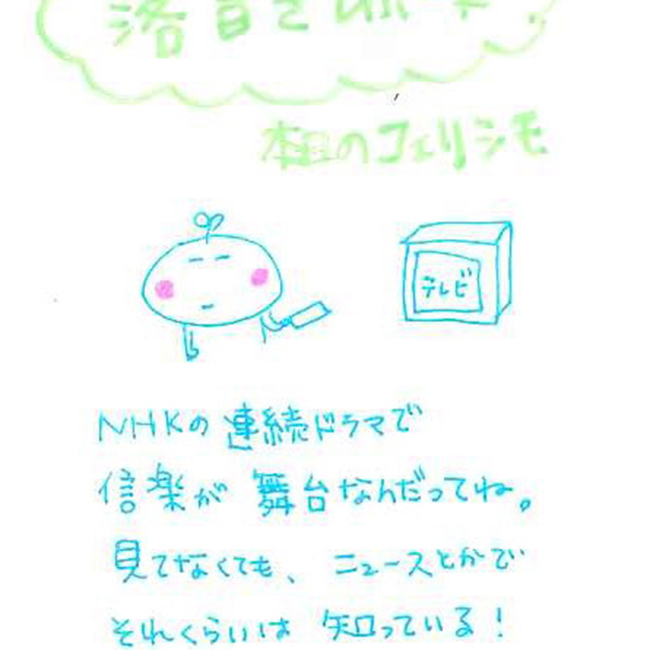 本日のフェリシモ
テレビ
NHKの連続ドラマで
信楽が舞台なんだってね。
見てなくても、ニュースとかで
それくらいは知っている！